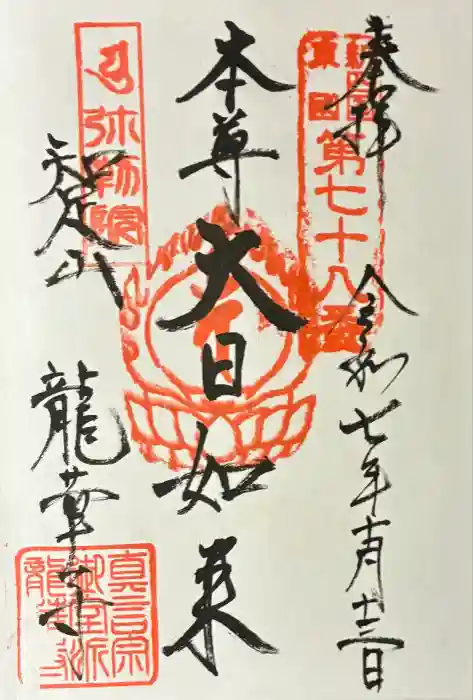 奉拝
令和七年十月十三日
第七十八番
本尊
大日如来
弥勒院
知足山
龍華寺
真言宗
御室派
龍華寺